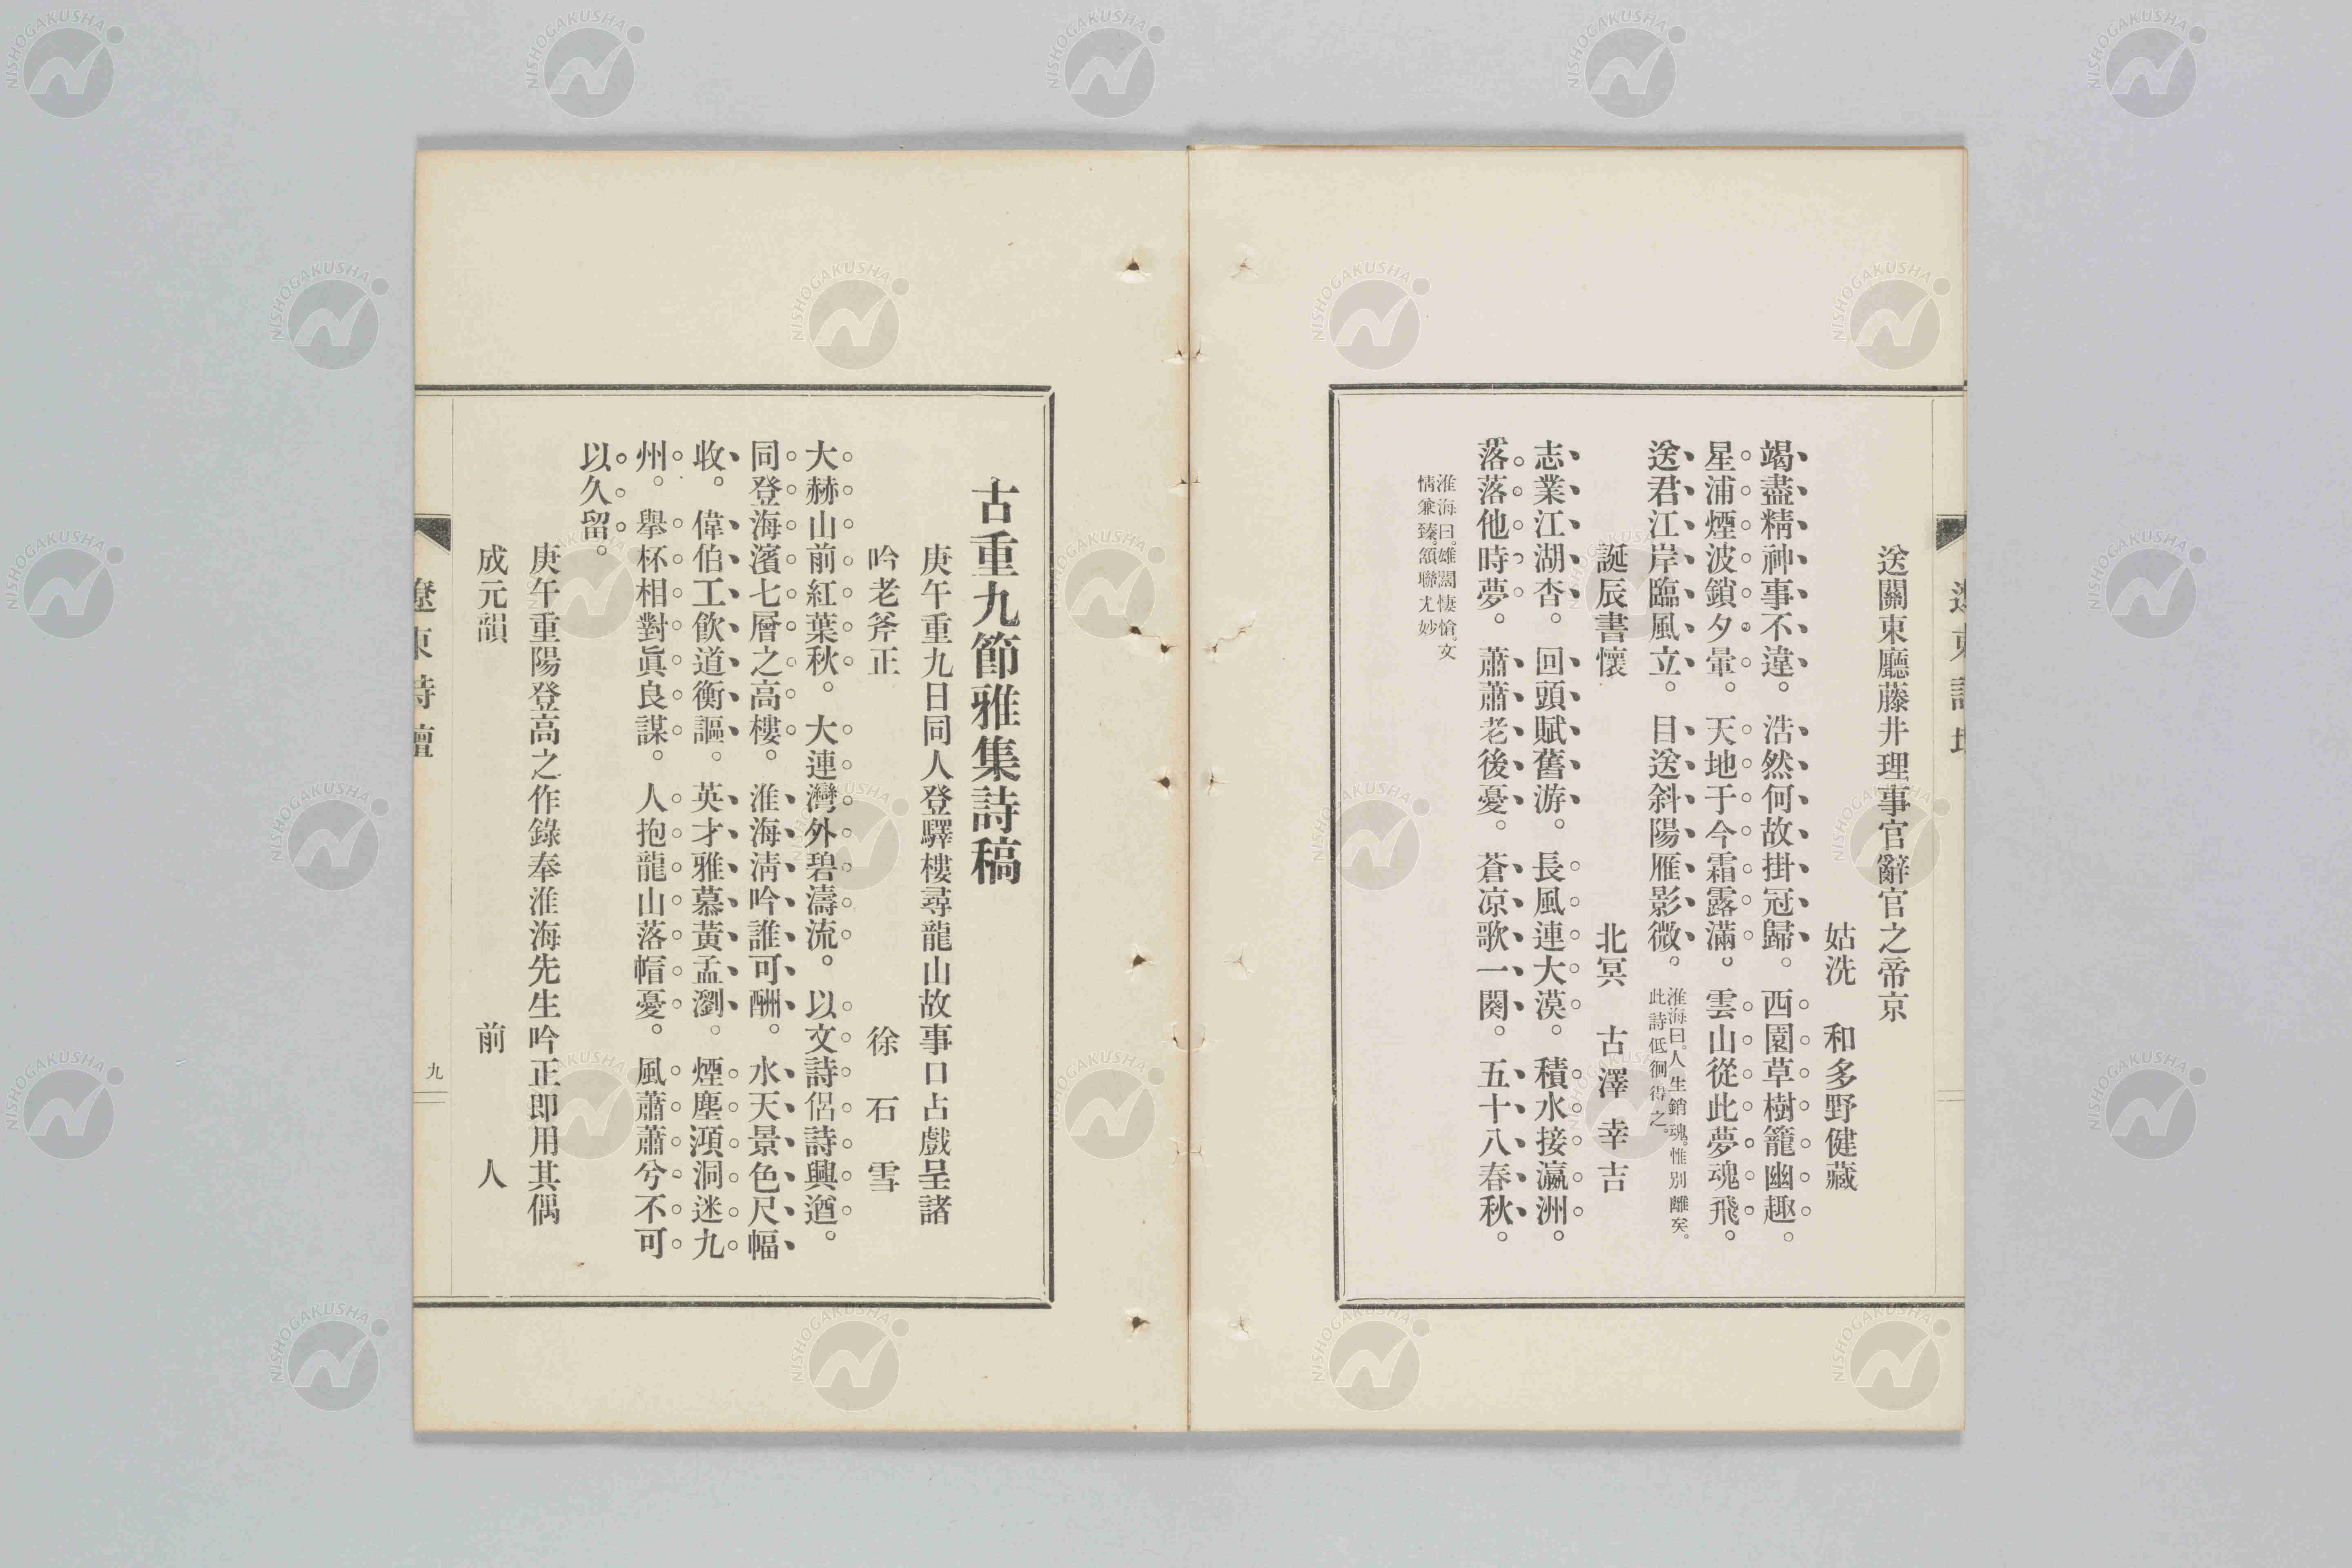 送關東廳藤井理事官辭官之帝京
姑洗 和多野健藏
竭盡精神事不違。浩然何故掛冠歸。西園草樹籠幽趣。
星浦煙波鎖夕暈。天地于今霜露滿。雲山從此夢魂飛。
送君江岸臨風立。目送斜陽雁影微。
淮海曰。人生銷魂。惟別離矣。
此詩低徊得之。
誕辰書懷 北冥 古澤幸吉
志業江湖杏。回頭賦舊游。長風連大漠。積水接瀛洲。
落落他時夢。蕭蕭老後憂。蒼凉歌一闋。五十八春秋。
淮海曰。雄闊悽愴。文
情兼臻。頷聯尤妙
古重九節雅集詩稿
庚午重九日同人登驛樓尋龍山故事口占戲呈諸
吟老斧正 徐石雪
大赫山前紅葉秋。大連灣外碧濤流。以文詩侶詩興遒。
同登海濱七層之高樓。淮海淸吟誰可酬。水天景色尺幅
收。偉伯工飮道衡謳。英才雅慕黃孟瀏。煙塵澒洞迷九
州。擧杯相對眞良謀。人抱龍山落帽憂。風蕭蕭兮不可
以久留。
庚午重陽登高之作錄奉淮海先生吟正即用其偶
成元韻 前人
遼東詩壇
九
NISHOGAKUSHA